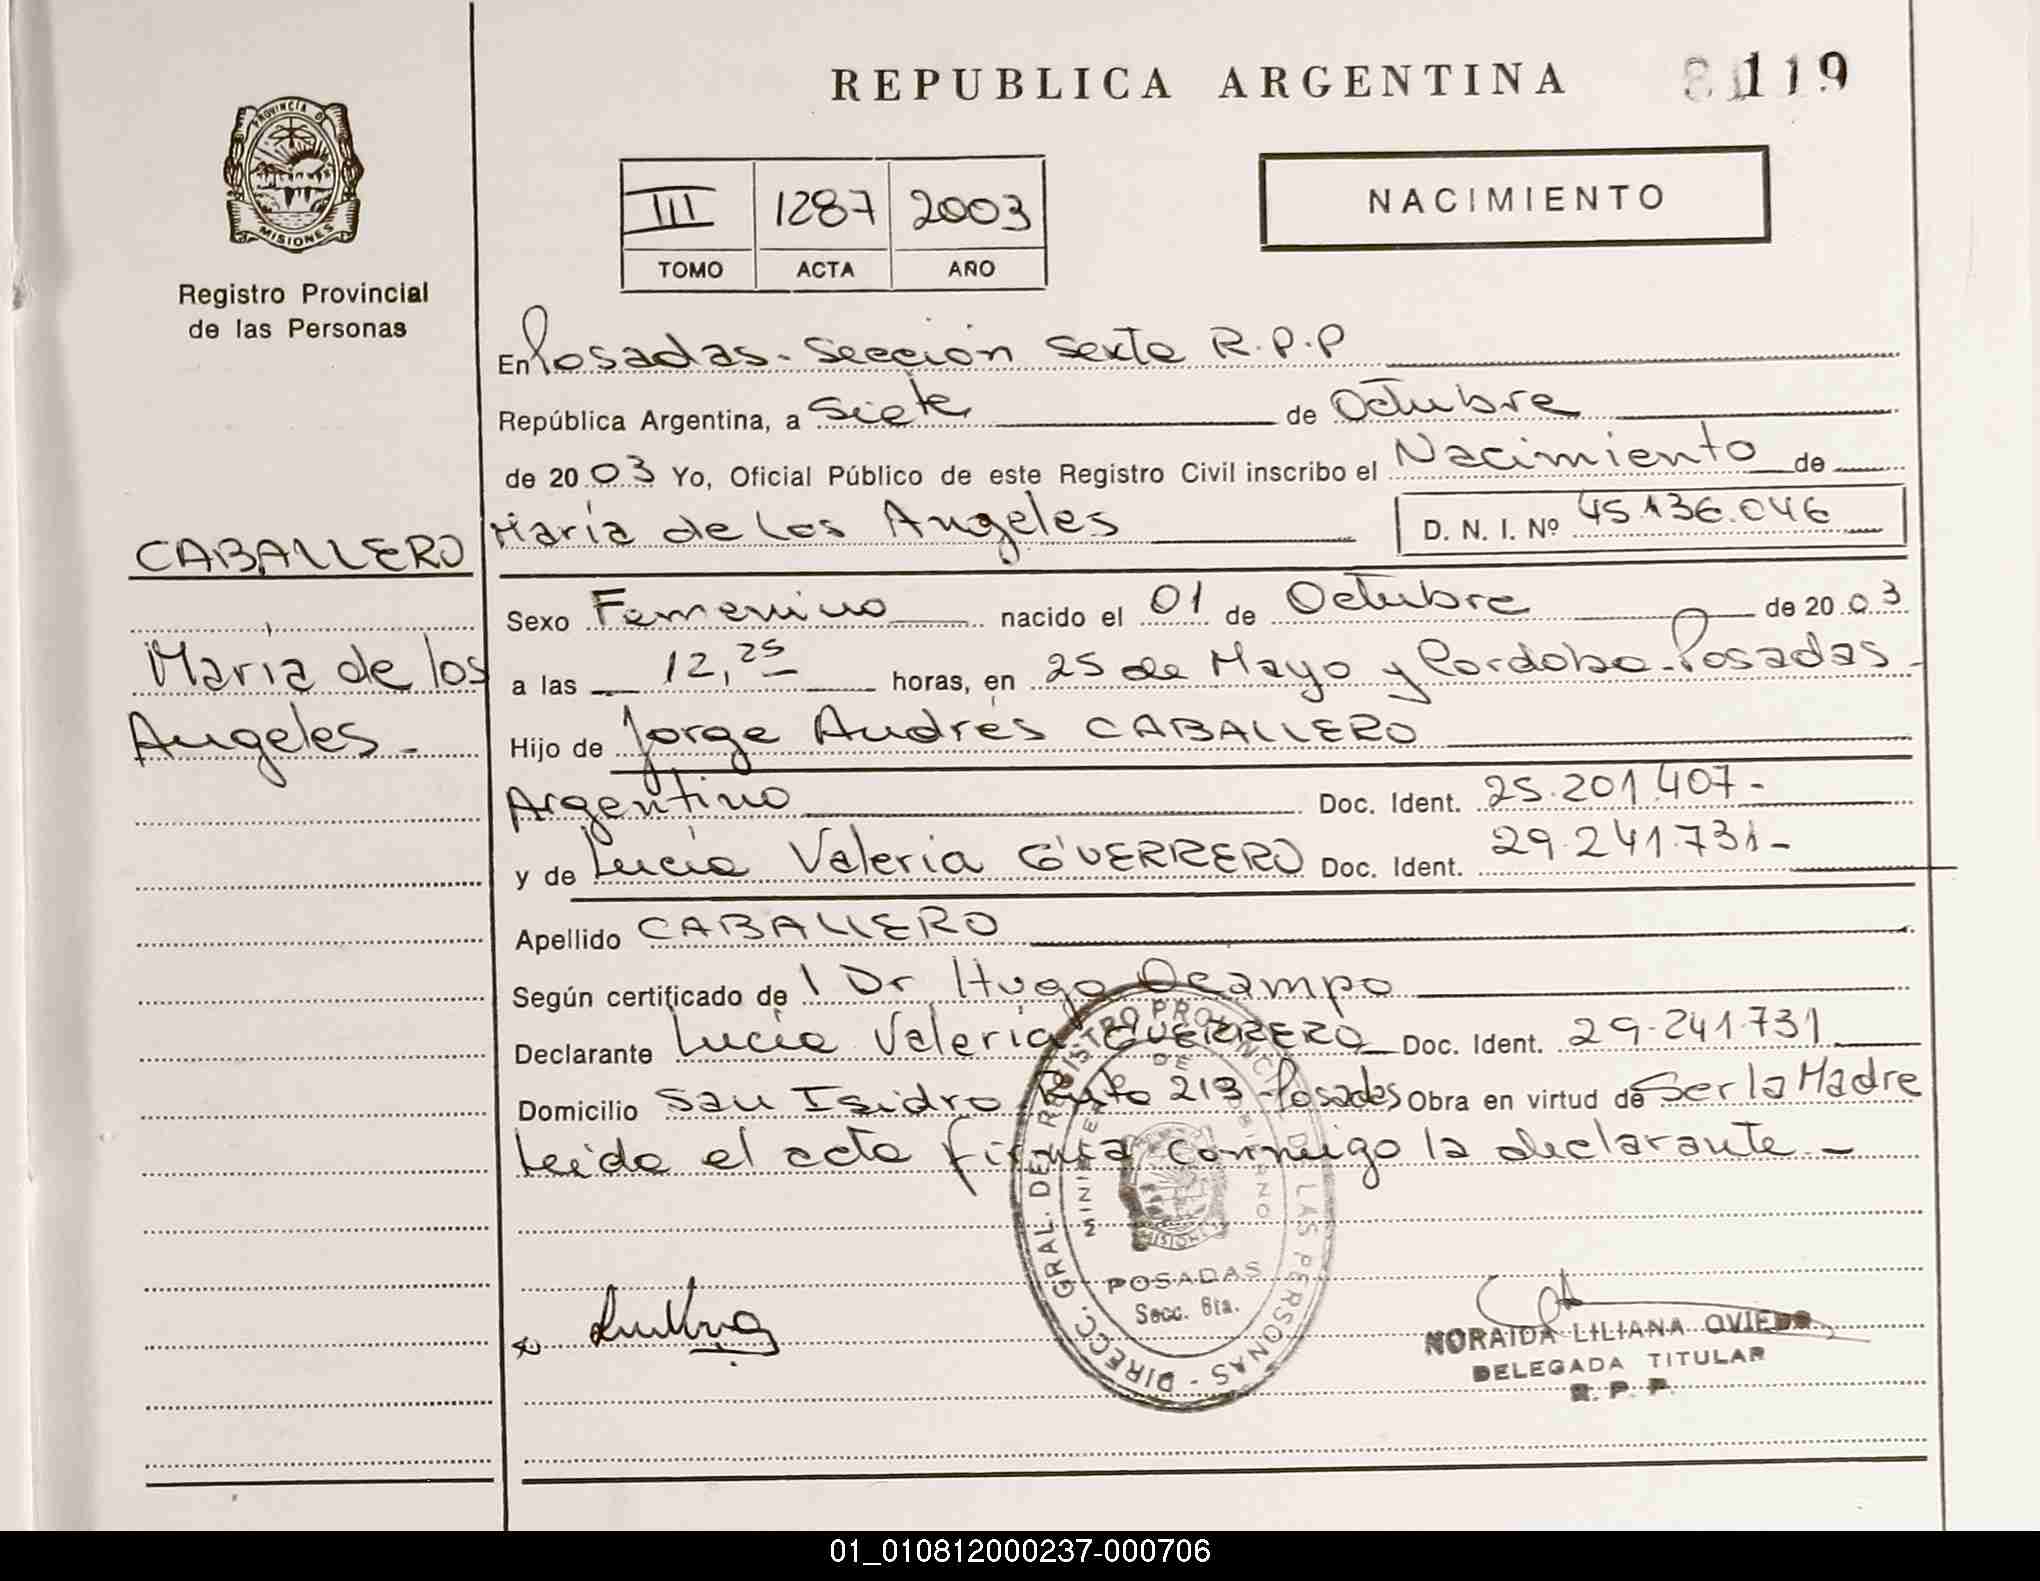 REPUBLICA ARGENTINA
119
PROVINCIA DE
MISIONES
Registro Provincial
de las Personas
III 1287 2003
TOMO ACTA AÑO
NACIMIENTO
En Posadas - Sección Sexta R.P.P
República Argentina, a Siete de Octubre
de 20 03 Yo, Oficial Público de este Registro Civil inscribo el Nacimiento de
María de los Angeles D. N. I. Nº 45.136.046
CABALLERO
María de los
Angeles.-
Sexo Femenino nacido el 01 de Octubre de 20 03
a las 12,25 horas, en 25 de Mayo y Cordoba - Posadas -
Hijo de Jorge Andrés CABALLERO
Argentino Doc. Ident. 25.201.407-
y de Lucía Valeria GUERRERO Doc. Ident. 29.241.731-
Apellido CABALLERO
Según certificado de Dr Hugo Ocampo
Declarante Lucía Valeria GUERRERO Doc. Ident. 29.241.731
Domicilio San Isidro 213 - Posadas Obra en virtud de Ser la Madre
Leida el acta firma conmigo la declarante.-
DIRECC. GRAL. DEL REGISTRO PROVINCIAL DE LAS PERSONAS -
MINISTERIO DE GOBIERNO
MISIONES
POSADAS
Secc. 6ta.
NORAIDA LILIANA OVIEDO
DELEGADA TITULAR
R. P. P.
01_010812000237-000706